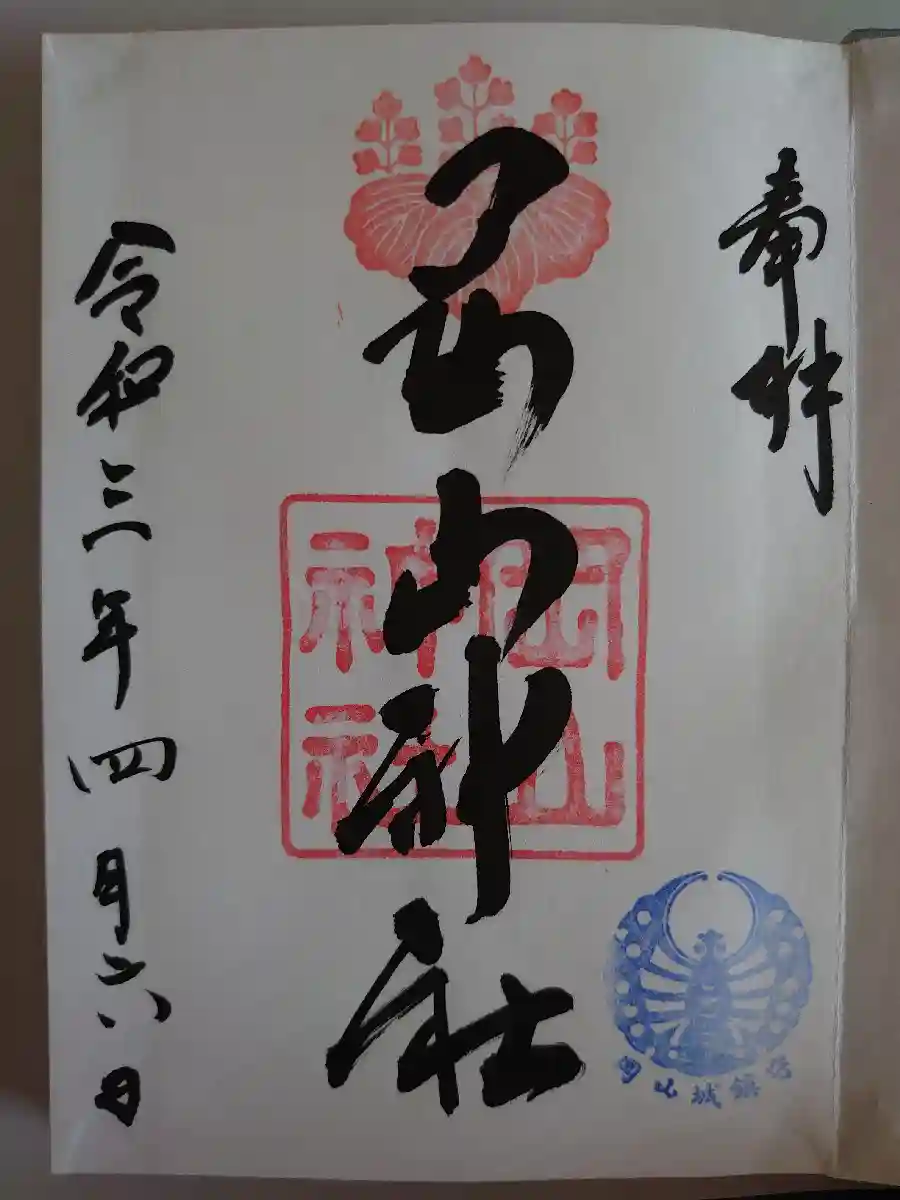 奉拝
岡山神社
岡山
神社
岡山城鎮守
令和三年四月六日